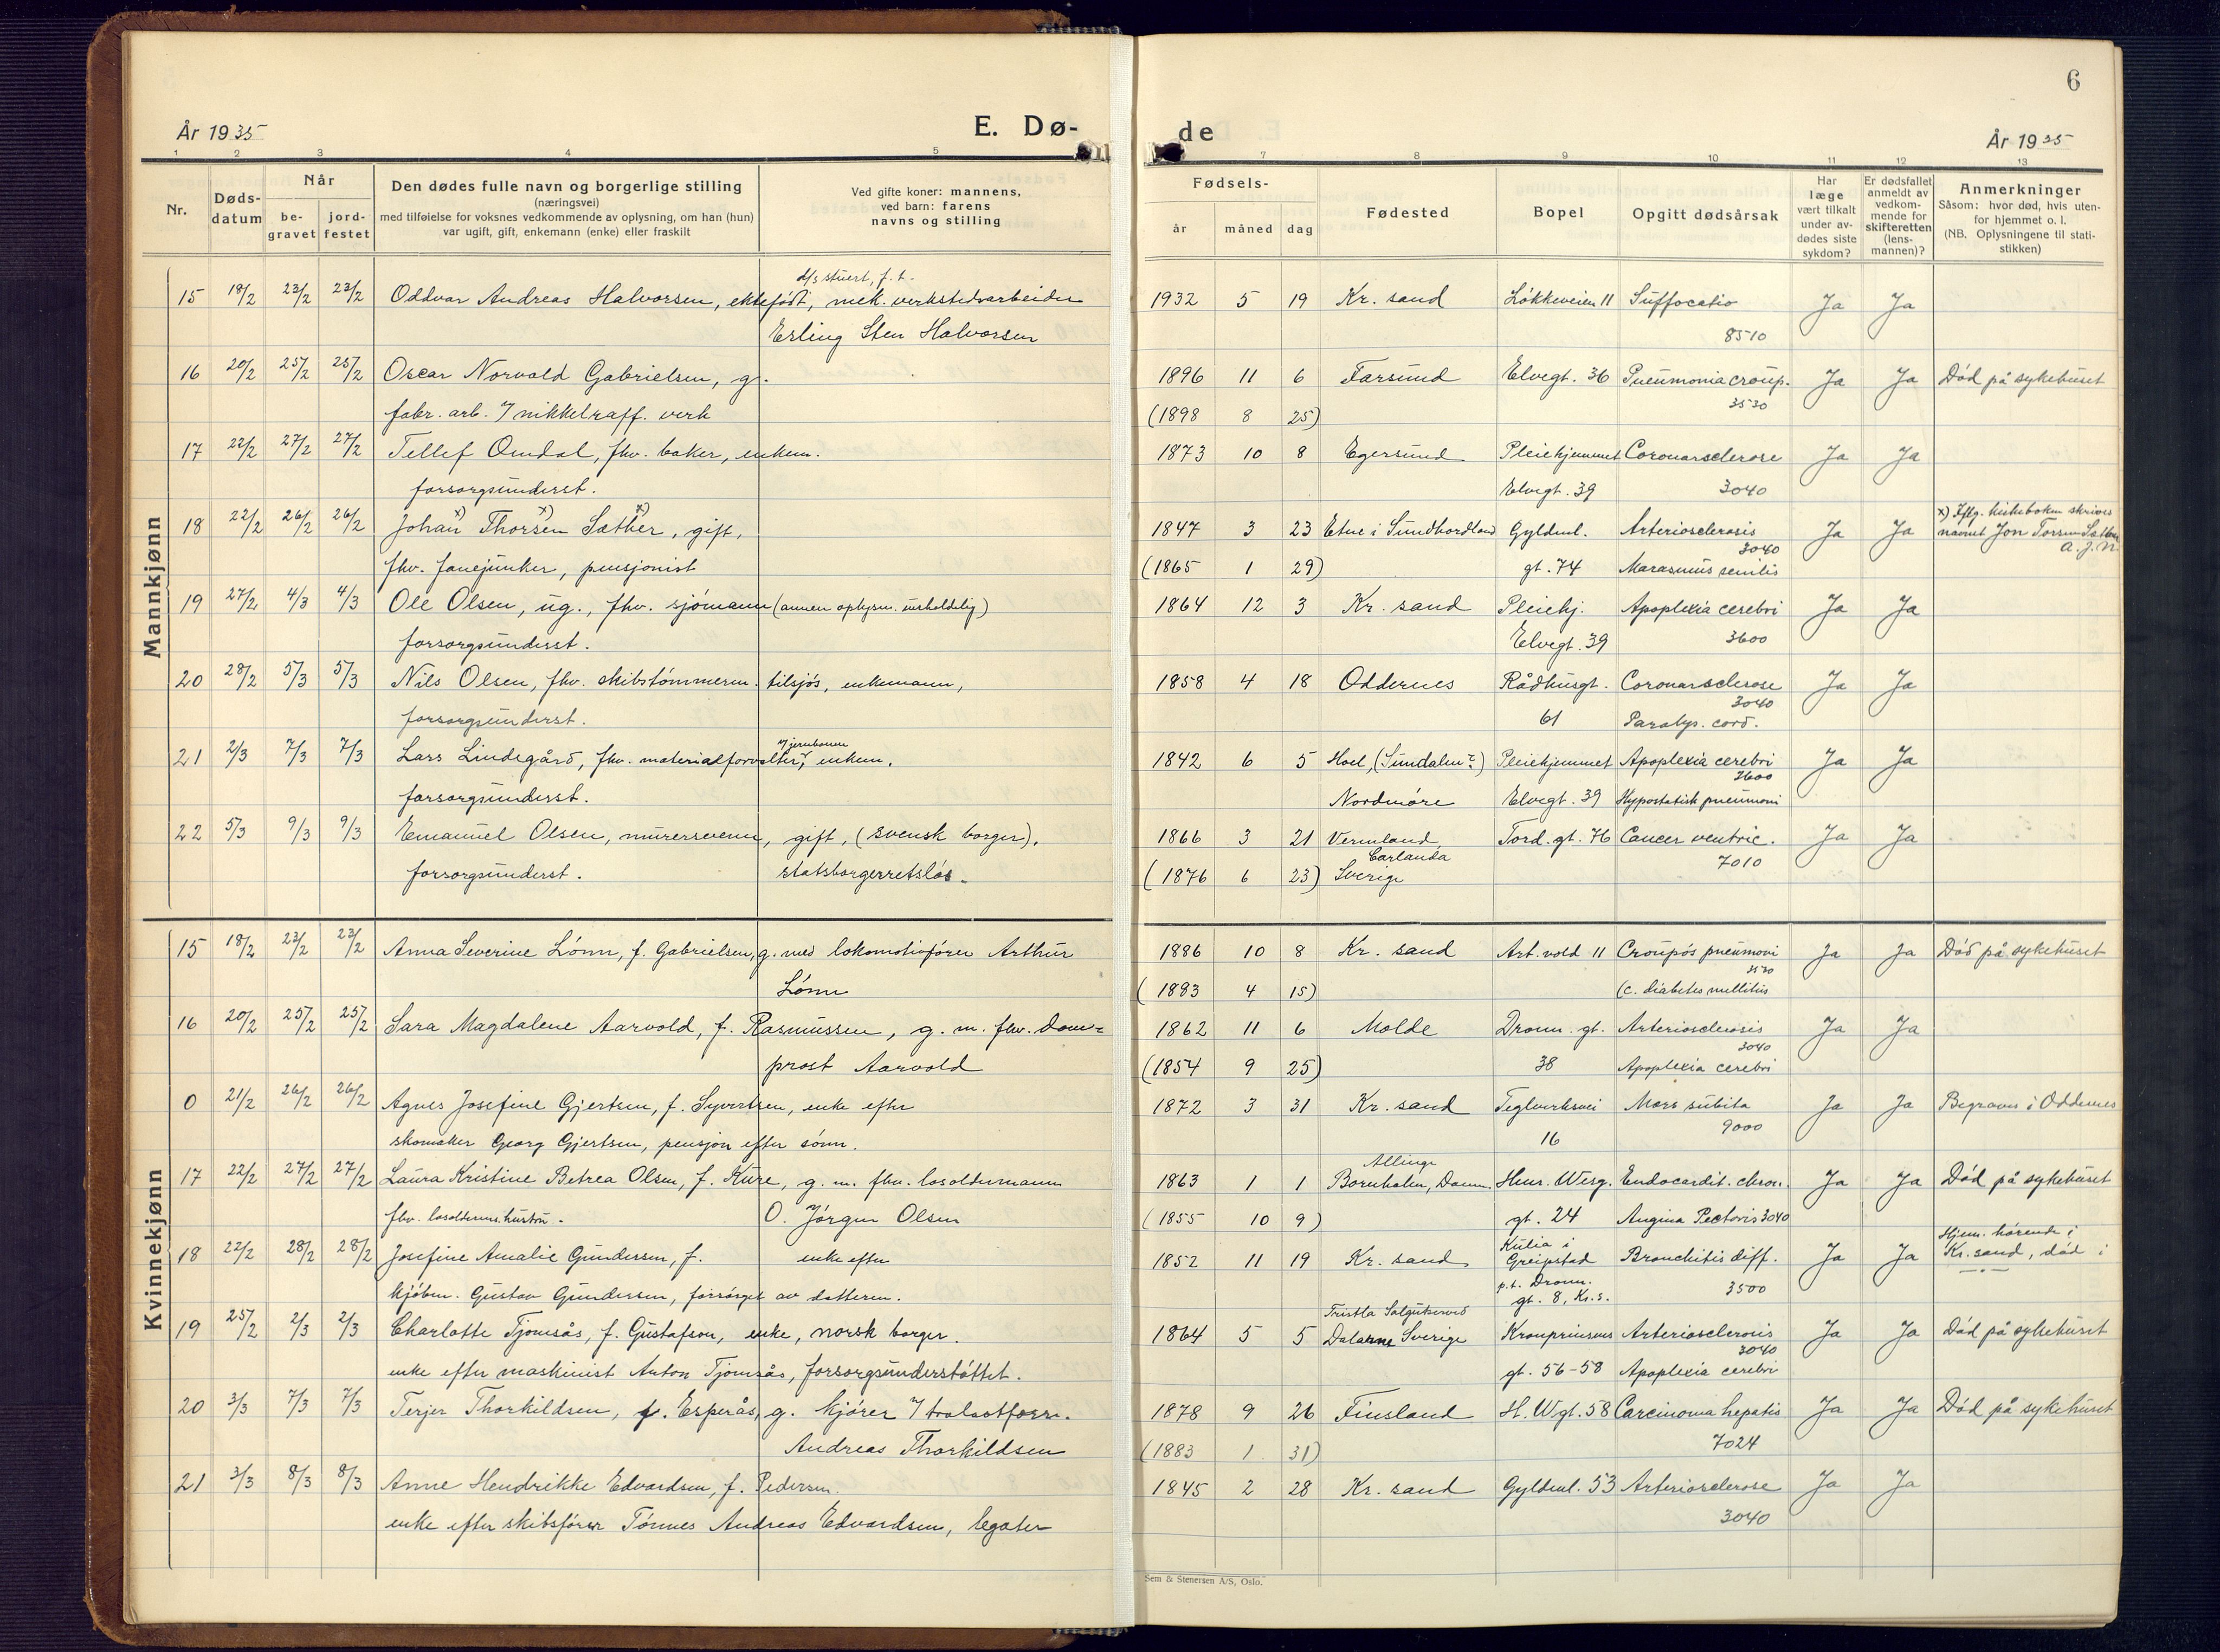 6
År 1935
E. Dø-
de
År 1935
1 2 3 4 5 7 8 9 10 11 12 13
Nr.
Døds-
datum
Når
be-
gravet
jord-
festet
Den dødes fulle navn og borgerlige stilling
(næringsvei)
med tilføielse for voksnes vedkommende av oplysning, om han (hun)
var ugift, gift, enkemann (enke) eller fraskilt
Ved gifte koner: mannens,
ved barn: farens
navns og stilling
Fødsels-
år måned dag
Fødested
Bopel
Opgitt dødsårsak
Har
læge
vært tilkalt
under av-
dødes siste
sykdom?
Er dødsfallet
anmeldt av
vedkom-
mende for
skifteretten
(lens-
mannen)?
Anmerkninger
Såsom: hvor død, hvis uten-
for hjemmet o. l.
(NB. Oplysningene til stati-
stikken)
Mannkjønn
d/s stuert, f. t.
15 18/2 23/2 23/2 Oddvar Andreas Halvorsen, ektefødt, mek. verkstedsarbeider 1932 5 19 Kr. sand Løkkeveien 11 Suffocatio Ja Ja
Erling Sten Halvorsen 8510
16 20/2 25/2 25/2 Oscar Norvald Gabrielsen, g. 1896 11 6 Farsund Elvegt. 36 Pneumonia croup. Ja Ja Død på sykehuset
fabr. arb. v/ nikkelraff. verk (1898 8 25) 3530
17 22/2 27/2 27/2 Tellef Omdal, fhv. baker, enkem. 1873 10 8 Egersund Pleiehjemmet Coronarsclerose Ja Ja
forsorgsunderst. Elvegt. 39 3040
18 22/2 26/2 26/2 Johan x) Thorsen x) Sæther x), gift, 1847 3 23 Etne i Sundhordland Gyldenl. Arteriosclerosis 3040 Ja Ja x) Iflg. kirkeboken skrives
navnet Jon Torsen Sæther
A. J. N.
fhv. fanejunker, pensjonist (1865 1 29) gt. 74 Marasmus senilis
19 27/2 4/3 4/3 Ole Olsen, ug., fhv. sjømann (annen oplysn. uerholdelig) 1864 12 3 Kr. sand Pleiehj. Apoplexia cerebri Ja Ja
forsorgsunderst. Elvegt. 39 3600
20 28/2 5/3 5/3 Nils Olsen, fhv. skibstømmerm. tilsjøs, enkemann, 1858 4 18 Oddernes Rådhusgt. Coronarsclerose 3040 Ja Ja
forsorgsunderst. 61 Paralys. cord.
v/ jernbanen
21 2/3 7/3 7/3 Lars Lindegård, fhv. materialforvalter, enkem. 1842 6 5 Hoel, (Sundalen?) Pleiehjemmet Apoplexia cerebri 3600 Ja Ja
forsorgsunderst. Nordmøre Elvegt. 39 Hypostatisk pneumoni
22 5/3 9/3 9/3 Emanuel Olsen, murersvenn, gift, (svensk borger). 1866 3 21 Vermland, Tord. gt. 76 Cancer ventric. Ja Ja
forsorgsunderst. statsborgerretsløs. (1876 6 23) Carlanda Sverige 7010
Kvinnekjønn
15 18/2 23/2 23/2 Anna Severine Lønn, f. Gabrielsen, g. med lokomotivfører Arthur 1886 10 8 Kr. sand Art. vold 11 Croupøs pneumoni 3530 Ja Ja Død på sykehuset
Lønn (1883 4 15) (c. diabetes mellitus
16 20/2 25/2 25/2 Sara Magdalene Aarvold, f. Rasmussen, g. m. fhv. dom= 1862 11 6 Molde Dronn. gt. Arteriosclerosis 3040 Ja Ja
prost Aarvold (1854 9 25) 38 Apoplexia cerebri
0 21/2 26/2 26/2 Agnes Josefine Gjertsen, f. Syvertsen, enke efter 1872 3 31 Kr. sand Teglverksvei Mors subita Ja Ja Begraves i Oddernes
skomaker Georg Gjertsen, pensjon efter sønn. 16 9000
17 22/2 27/2 27/2 Laura Kristine Betrea Olsen, f. Kure, g. m. fhv. losoldermann 1863 1 1 Allinge Bornholm, Danm. Henr. Werg. Endocardit. chron. Ja Ja Død på sykehuset
fhv. losolderms. hustru. O. Jørgen Olsen (1855 10 9) gt. 24 Angina Pectoris 3040
18 22/2 28/2 28/2 Josefine Amalie Gundersen, f. enke efter 1852 11 19 Kr. sand Kulia i Greipstad Bronchitis diff. Ja Ja Hjem. hørende i
Kr. sand, død i
kjøbm. Gustav Gundersen, forsørget av datteren. p.t. Dronn. gt. 8, Kr. s. 3500
19 25/2 2/3 2/3 Charlotte Tjomsås, f. Gustafson, enke, norsk borger. 1864 5 5 Dalarne Sverige Kronprinsens Arteriosclerosis 3040 Ja Ja Død på sykehuset
enke efter maskinist Anton Tjomsås, forsorgsunderstøttet. gt. 56-58 Apoplexia cerebri
20 3/3 7/3 7/3 Terjer Thorkildsen, f. Esperås, g. kjører v/ trelastforr. 1878 9 26 Finsland H. W gt. 58 Carcinoma hepatis Ja Ja Død på sykehuset
Andreas Thorkildsen (1883 1 31) 7024
21 3/3 8/3 8/3 Anne Hendrikke Edvardsen, f. Pedersen. 1845 2 28 Kr. sand Gyldenl. 53 Arteriosclerose Ja Ja
enke efter skibsfører Tønnes Andreas Edvardsen, legater 3040
Sem & Stenersen A/S, Oslo.